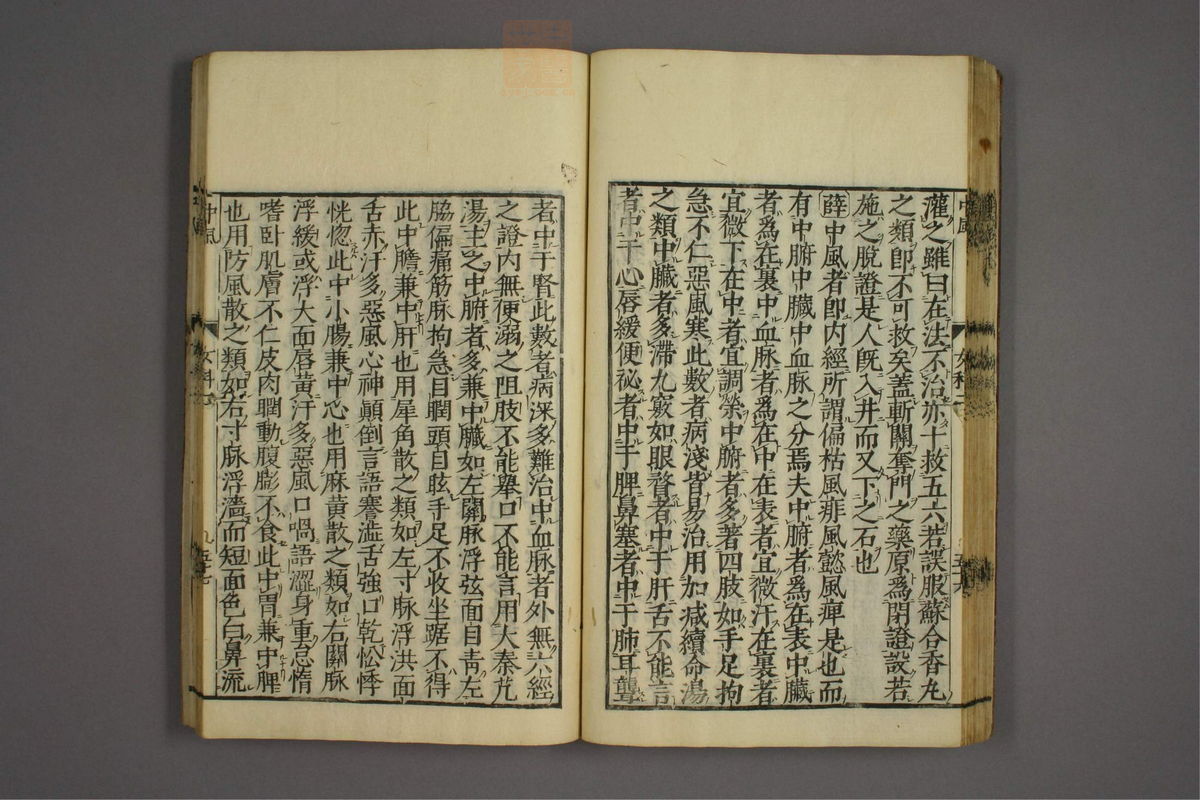 灌之雖曰在法不治亦十救五六若誤服蘇合香丸
之類卽不可救矣盖斬關奪門之藥原爲閉證設若
施之脫證是人旣入井而又下之石也
薛中風者卽内經所謂偏枯風痱風懿風痺是也而
有中腑中臟中血脉之分焉夫中腑者爲在表中臟
者爲在裏中血脉者爲在中在表者宜微汗在裏者
宜微下在中者宜調榮中腑者多著四肢如手足拘
急不仁惡風寒此數者病淺皆易治用加减續命湯
之類中臟者多滯九竅如眼瞀者中于肝舌不能言
者中于心唇緩便祕者中于脾鼻塞者中于肺耳聾
者中于腎此數者病深多難治中血脉者外無六經
之證内無便溺之阻肢不能舉口不能言用大秦艽
湯主之中腑者多兼中臟如左關脉浮弦面目靑左
脇偏痛筋脉拘急目瞤頭目眩手足不收坐踞不得
此中膽兼中肝也用犀角散之類如左寸脉浮洪面
舌赤汗多惡風心神顚倒言語蹇澁舌強口乾忪悸
恍惚此中小腸兼中心也用麻黄散之類如右關脉
浮緩或浮大面唇黄汗多惡風口喎語澀身重怠惰
嗜卧肌膚不仁皮肉瞤動腹膨不食此中胃兼中脾
也用防風散之類如右寸脉浮濇而短面色白鼻流
中風
女科